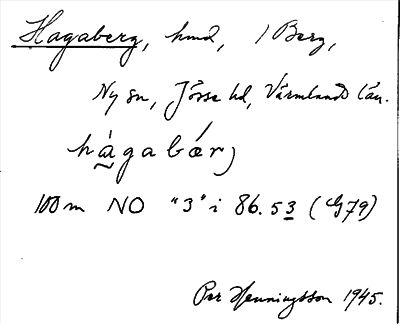 Hagaberg, hmd, 1 Berg,
Ny sn, Jösse hd, Värmlands län.
hágabǽr)
100 m NO "3" i 86.53 (G79)
Per Henningsson 1945.